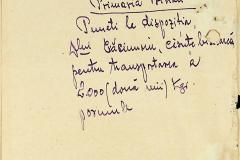 Primăria
Puneți la dispoziția
Dlui Băcănariu, câinte
pentru transportarea a
2000 (două mii) kgr.
porumb